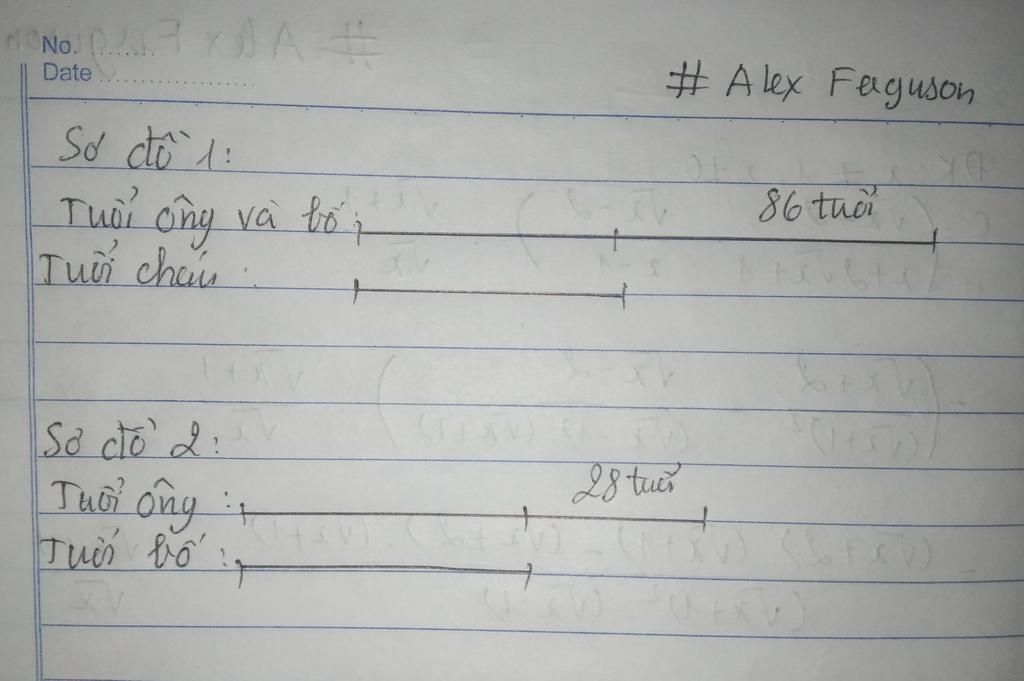 No. ........
Date ................
# Alex Faguson
Sơ đồ 1:
Tuổi ông và bố:
86 tuổi
Tuổi cháu :
Sơ đồ 2:
28 tuổi
Tuổi ông :
Tuổi bố :